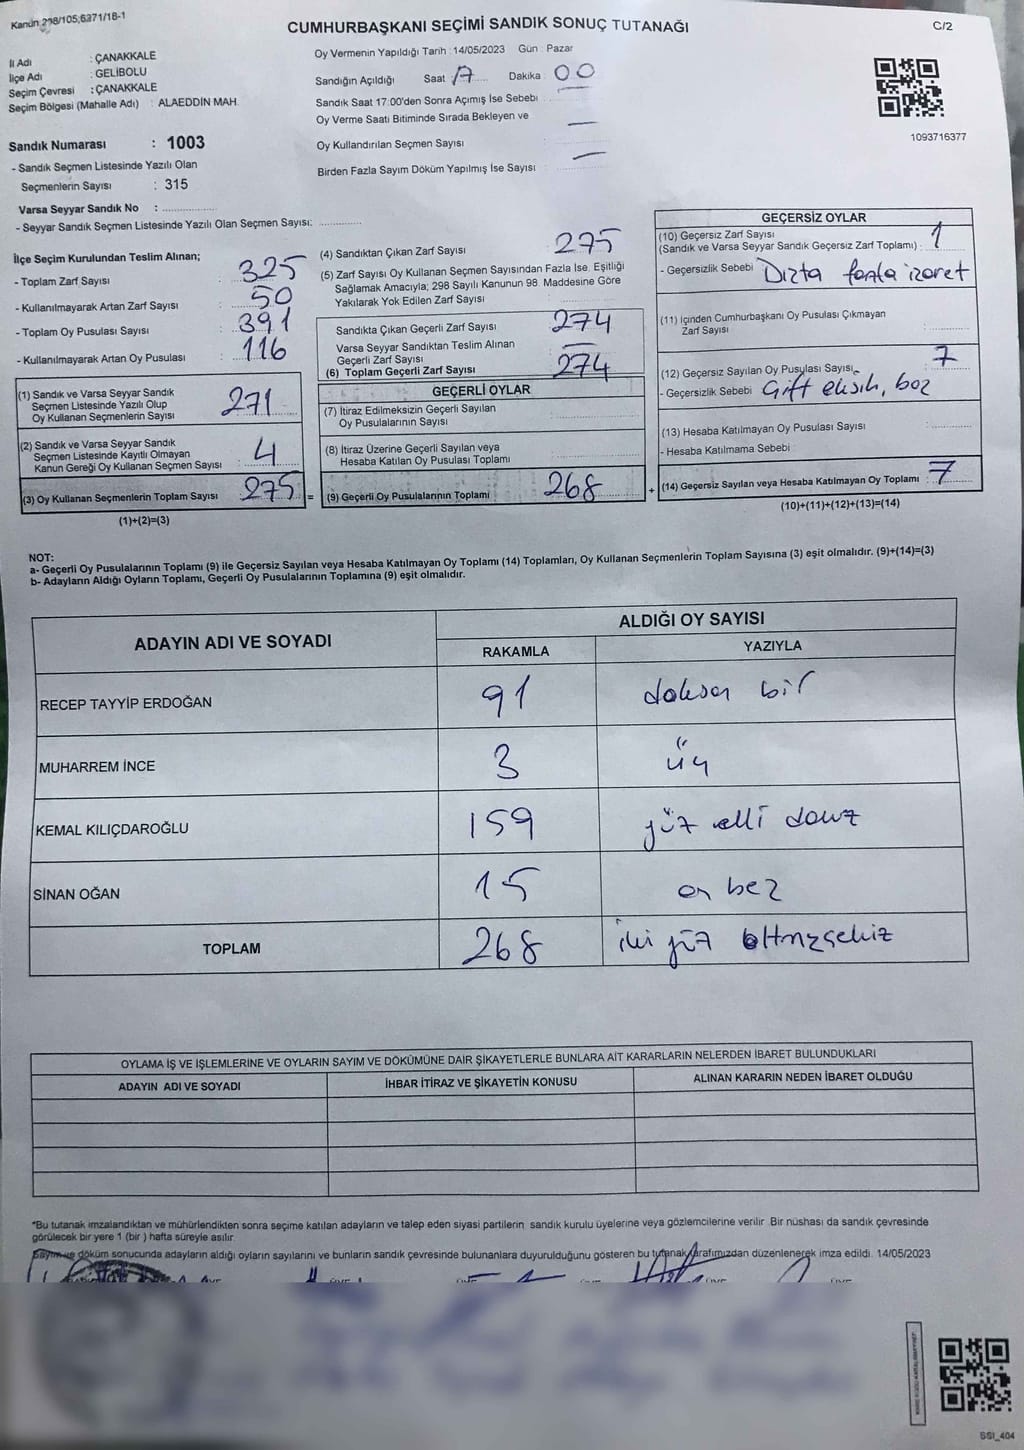 Kanun 298/105;6271/18-1
CUMHURBAŞKANI SEÇİMİ SANDIK SONUÇ TUTANAĞI
C/2
İl Adı : ÇANAKKALE
İlçe Adı : GELİBOLU
Seçim Çevresi : ÇANAKKALE
Seçim Bölgesi (Mahalle Adı) : ALAEDDİN MAH.
Sandık Numarası : 1003
- Sandık Seçmen Listesinde Yazılı Olan
Seçmenlerin Sayısı : 315
Varsa Seyyar Sandık No :
- Seyyar Sandık Seçmen Listesinde Yazılı Olan Seçmen Sayısı:
Oy Vermenin Yapıldığı Tarih : 14/05/2023 Gün : Pazar
Sandığın Açıldığı Saat 17 Dakika : 00
Sandık Saat 17:00'den Sonra Açımış İse Sebebi
Oy Verme Saati Bitiminde Sırada Bekleyen ve
Oy Kullandırılan Seçmen Sayısı —
Birden Fazla Sayım Döküm Yapılmış İse Sayısı —
1093716377
İlçe Seçim Kurulundan Teslim Alınan;
- Toplam Zarf Sayısı : 325
- Kullanılmayarak Artan Zarf Sayısı : 50
- Toplam Oy Pusulası Sayısı : 391
- Kullanılmayarak Artan Oy Pusulası : 116
(1) Sandık ve Varsa Seyyar Sandık
Seçmen Listesinde Yazılı Olup
Oy Kullanan Seçmenlerin Sayısı 271
(2) Sandık ve Varsa Seyyar Sandık
Seçmen Listesinde Kayıtlı Olmayan
Kanun Gereği Oy Kullanan Seçmen Sayısı 4
(3) Oy Kullanan Seçmenlerin Toplam Sayısı 275 =
(1)+(2)=(3)
(4) Sandıktan Çıkan Zarf Sayısı 275
(5) Zarf Sayısı Oy Kullanan Seçmen Sayısından Fazla İse, Eşitliği
Sağlamak Amacıyla; 298 Sayılı Kanunun 98. Maddesine Göre
Yakılarak Yok Edilen Zarf Sayısı
Sandıkta Çıkan Geçerli Zarf Sayısı 274
Varsa Seyyar Sandıktan Teslim Alınan
Geçerli Zarf Sayısı —
(6) Toplam Geçerli Zarf Sayısı 274
GEÇERLİ OYLAR
(7) İtiraz Edilmeksizin Geçerli Sayılan
Oy Pusulalarının Sayısı
(8) İtiraz Üzerine Geçerli Sayılan veya
Hesaba Katılan Oy Pusulası Toplamı
(9) Geçerli Oy Pusulalarının Toplamı 268 +
GEÇERSİZ OYLAR
(10) Geçersiz Zarf Sayısı
(Sandık ve Varsa Seyyar Sandık Geçersiz Zarf Toplamı) : 1
- Geçersizlik Sebebi : Dızta fazla izaret
(11) İçinden Cumhurbaşkanı Oy Pusulası Çıkmayan
Zarf Sayısı
(12) Geçersiz Sayılan Oy Pusulası Sayısı 7
- Geçersizlik Sebebi Çift eksik, boz
(13) Hesaba Katılmayan Oy Pusulası Sayısı
- Hesaba Katılmama Sebebi
(14) Geçersiz Sayılan veya Hesaba Katılmayan Oy Toplamı : 7
(10)+(11)+(12)+(13)=(14)
NOT:
a- Geçerli Oy Pusulalarının Toplamı (9) ile Geçersiz Sayılan veya Hesaba Katılmayan Oy Toplamı (14) Toplamları, Oy Kullanan Seçmenlerin Toplam Sayısına (3) eşit olmalıdır. (9)+(14)=(3)
b- Adayların Aldığı Oyların Toplamı, Geçerli Oy Pusulalarının Toplamına (9) eşit olmalıdır.
ADAYIN ADI VE SOYADI
ALDIĞI OY SAYISI
RAKAMLA YAZIYLA
RECEP TAYYİP ERDOĞAN 91 doksan bir
MUHARREM İNCE 3 üç
KEMAL KILIÇDAROĞLU 159 yüz elli dokuz
SİNAN OĞAN 15 on beş
TOPLAM 268 iki yüz altmışsekiz
OYLAMA İŞ VE İŞLEMLERİNE VE OYLARIN SAYIM VE DÖKÜMÜNE DAİR ŞİKAYETLERLE BUNLARA AİT KARARLARIN NELERDEN İBARET BULUNDUKLARI
ADAYIN ADI VE SOYADI İHBAR İTİRAZ VE ŞİKAYETİN KONUSU ALINAN KARARIN NEDEN İBARET OLDUĞU
*Bu tutanak imzalandıktan ve mühürlendikten sonra seçime katılan adayların ve talep eden siyasi partilerin sandık kurulu üyelerine veya gözlemcilerine verilir. Bir nüshası da sandık çevresinde
görülecek bir yere 1 (bir ) hafta süreyle asılır.
Sayım ve döküm sonucunda adayların aldığı oyların sayılarını ve bunların sandık çevresinde bulunanlara duyurulduğunu gösteren bu tutanak tarafımızdan düzenlenerek imza edildi. 14/05/2023
SSI_404